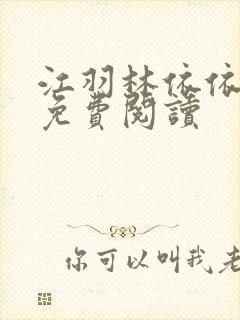 江羽林依依
免費閱讀
你可以叫我老